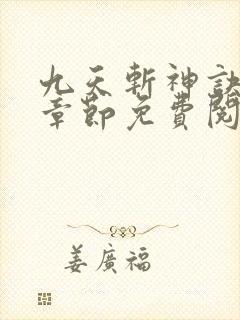 九天斬神訣
章節免費閱
姜廣福